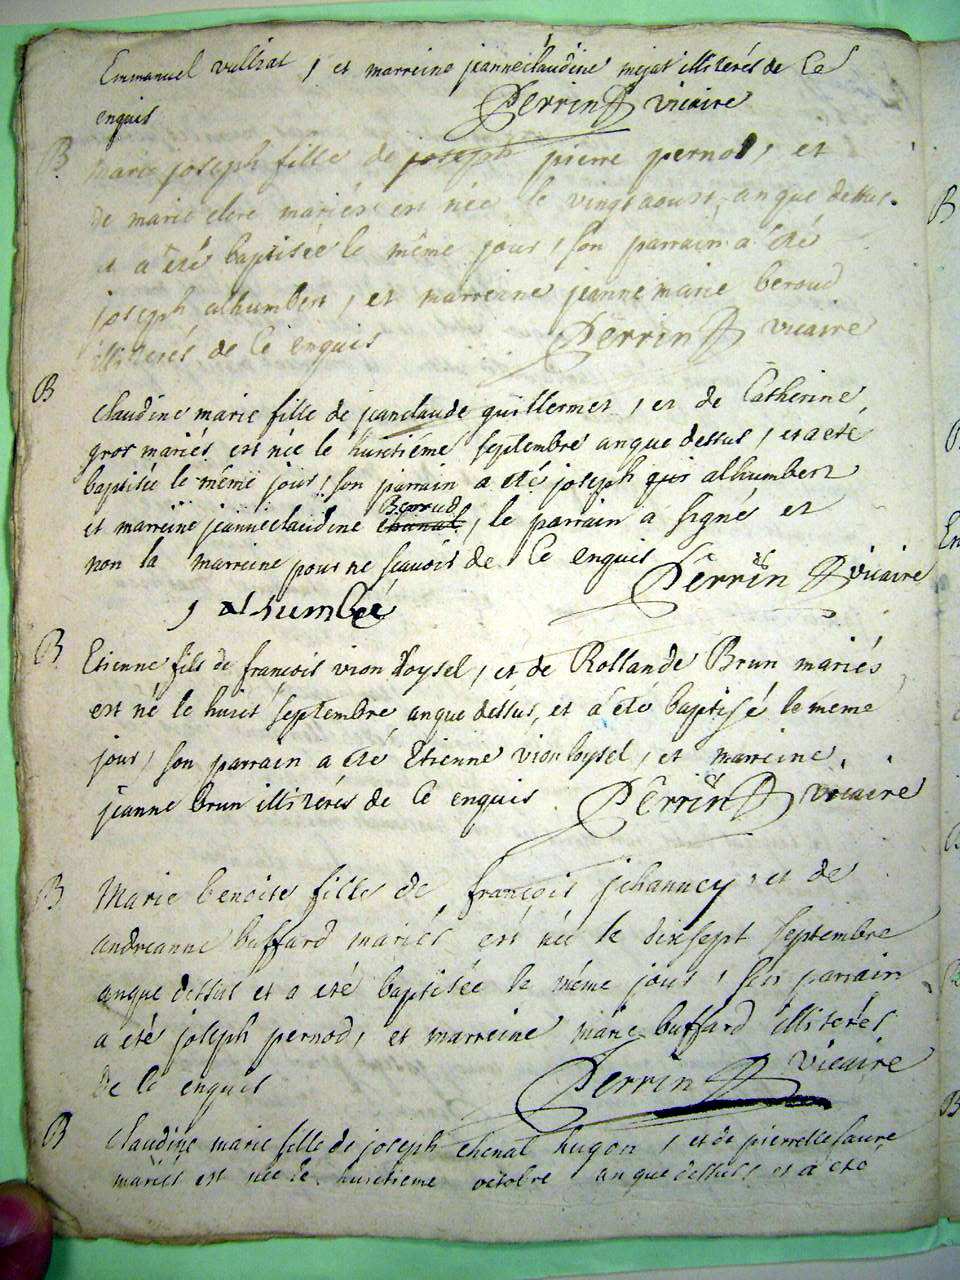 Emmanuel vulliat, et marreine jeanneclaudine mejat illiterés de Ce
enquis Perrin vicaire
B
marie joseph fille de joseph pierre pernod, et
de marie clere mariés est née le vingt aoust an que dessus.
et a été baptisée le même jour, son parrain a été
joseph alhumbert, et marreine jeanne marie beroud
illiterés de Ce enquis Perrin vicaire
B
Claudine marie fille de jeanclaude guillermet, et de Catherine
gros mariés, est née le huitiéme septembre an que dessus, et a eté
baptisée le même jour, son parrain a eté joseph alhumbert
et marreine jeanneclaudine Beroud, le parrain a signés et
non la marreine pour ne scavois de Ce enquis Perrin vicaire
j alhumbé
B
Etienne fils de francois vion loysel, et de Rollande Brun mariés
est né le huict septembre an que dessus, et a été baptisé le meme
jour, son parrain a eté Etienne vion loysel, et marreine
jeanne brun illiterés de Ce enquis Perrin vicaire
B
Marie benoite fille de françois jehanney, et de
andreanne buffard mariés est née le dixsept septembre
an que dessus et a eté baptisée le même jour, son parrain
a été joseph pernod, et marreine marie buffard illiterés
de Ce enquis Perrin vicaire
B
Claudine marie fille de joseph chenal hugon, et de pierrette faure
mariés est née le huictieme octobre an que dessus, et a eté